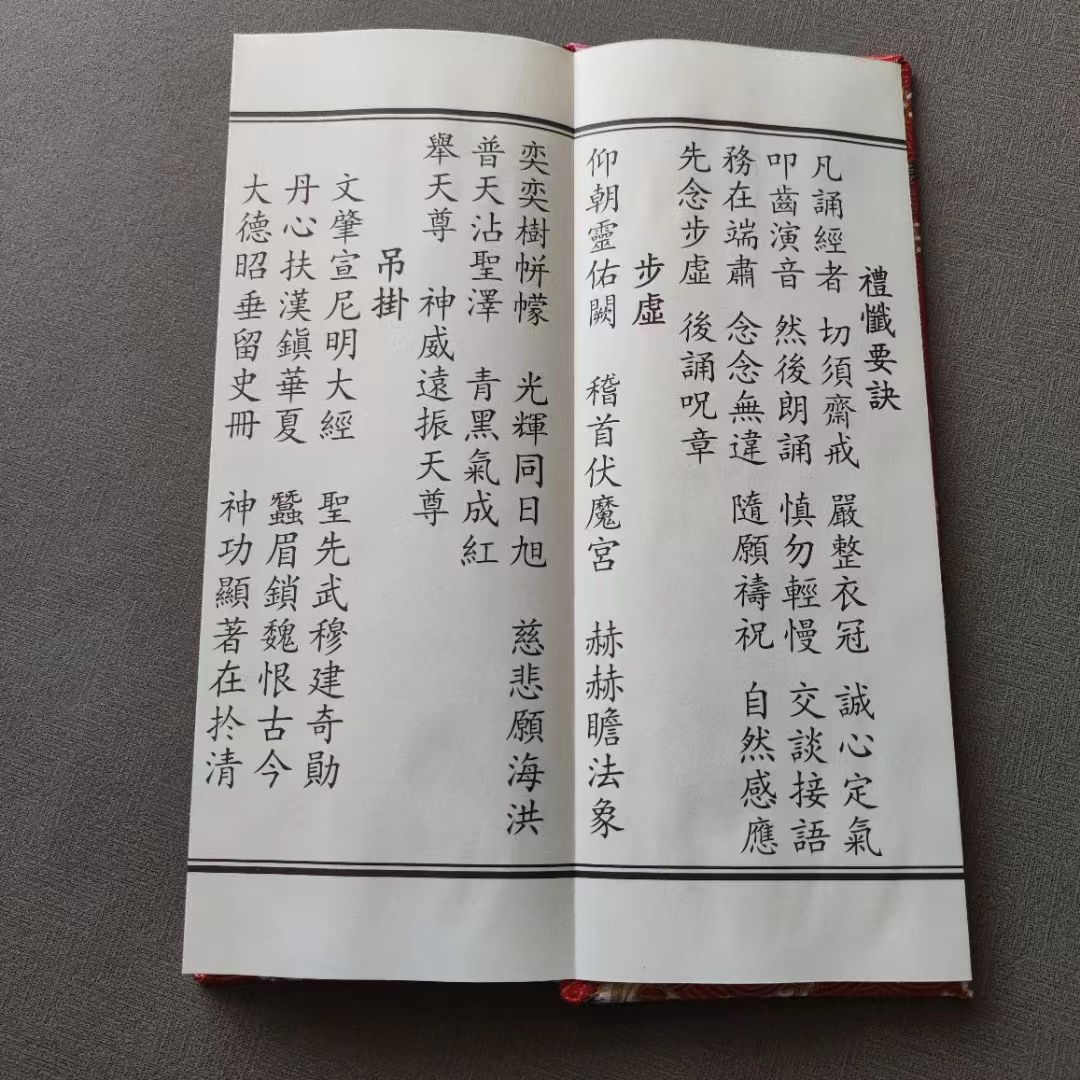 禮懺要訣
凡誦經者 切須齋戒 嚴整衣冠 誠心定氣
叩齒演音 然後朗誦 慎勿輕慢 交談接語
務在端肅 念念無違 隨願禱祝 自然感應
先念步虛 後誦呪章
步虛
仰朝靈佑闕 稽首伏魔宮 赫赫瞻法象
奕奕樹帡幪 光輝同日旭 慈悲願海洪
普天沾聖澤 青黑氣成紅
舉天尊 神威遠振天尊
吊掛
文肇宣尼明大經 聖先武穆建奇勛
丹心扶漢鎮華夏 蠶眉鎖魏恨古今
大德昭垂留史冊 神功顯著在扵清